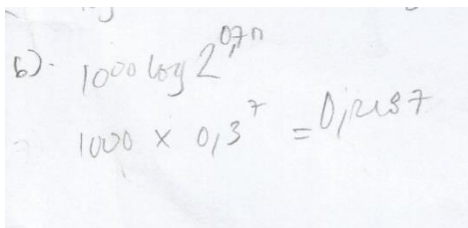 b). 1000 log 2^0,7n
1000 x 0,3^7 = 0,2187